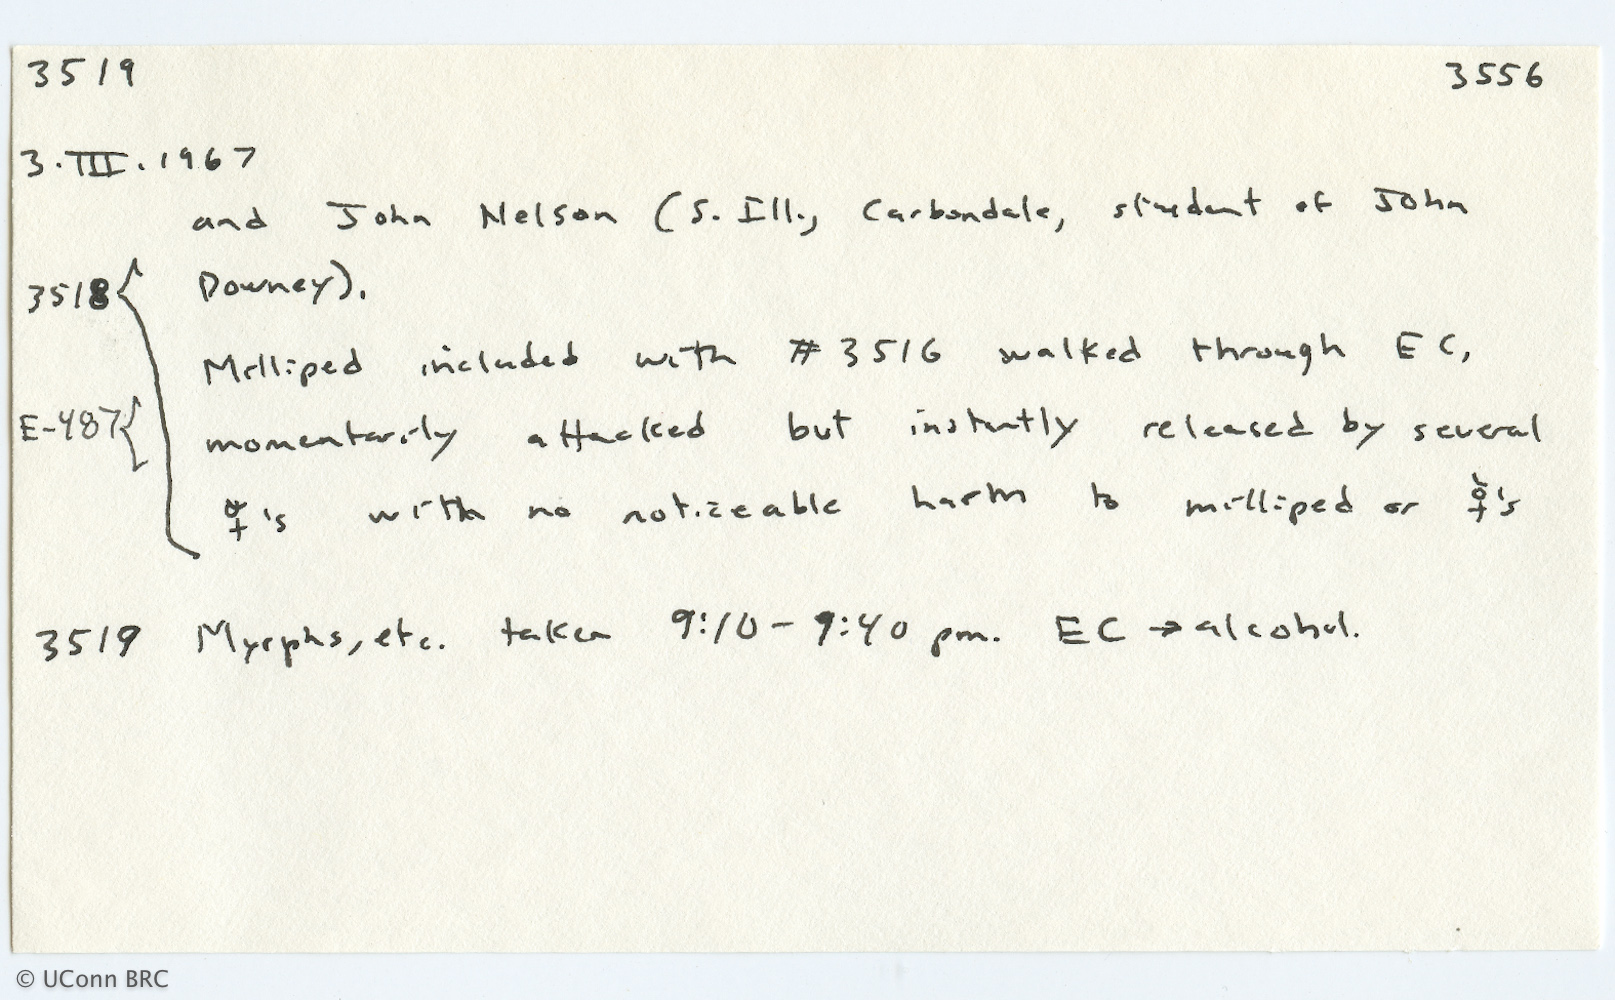 3519 3556
3.III.1967
and John Nelson (S. Ill., Carbondale, student of John
3518 { Downey).
Milliped included with #3516 walked through EC,
E-487 { momentarily attacked but instantly released by several
☿'s with no noticeable harm to milliped or ☿'s
3519 Myrphs, etc. taken 9:10-9:40 pm. EC → alcohol.
© UConn BRC